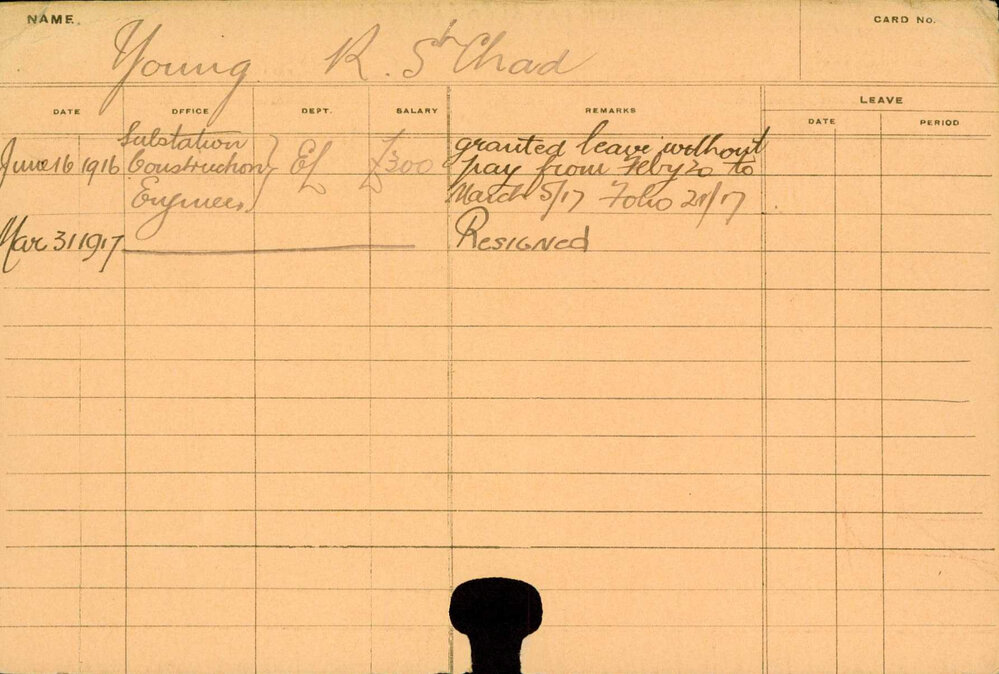 NAME.
CARD No.
Young R. St Chad
LEAVE
DATE OFFICE DEPT. SALARY REMARKS DATE PERIOD
Substation granted leave without
June 16 1916 Construction } EL £300 pay from Feby 20 to
Engineer March 5/17 Folio 21/17
Mar 31 1917 Resigned